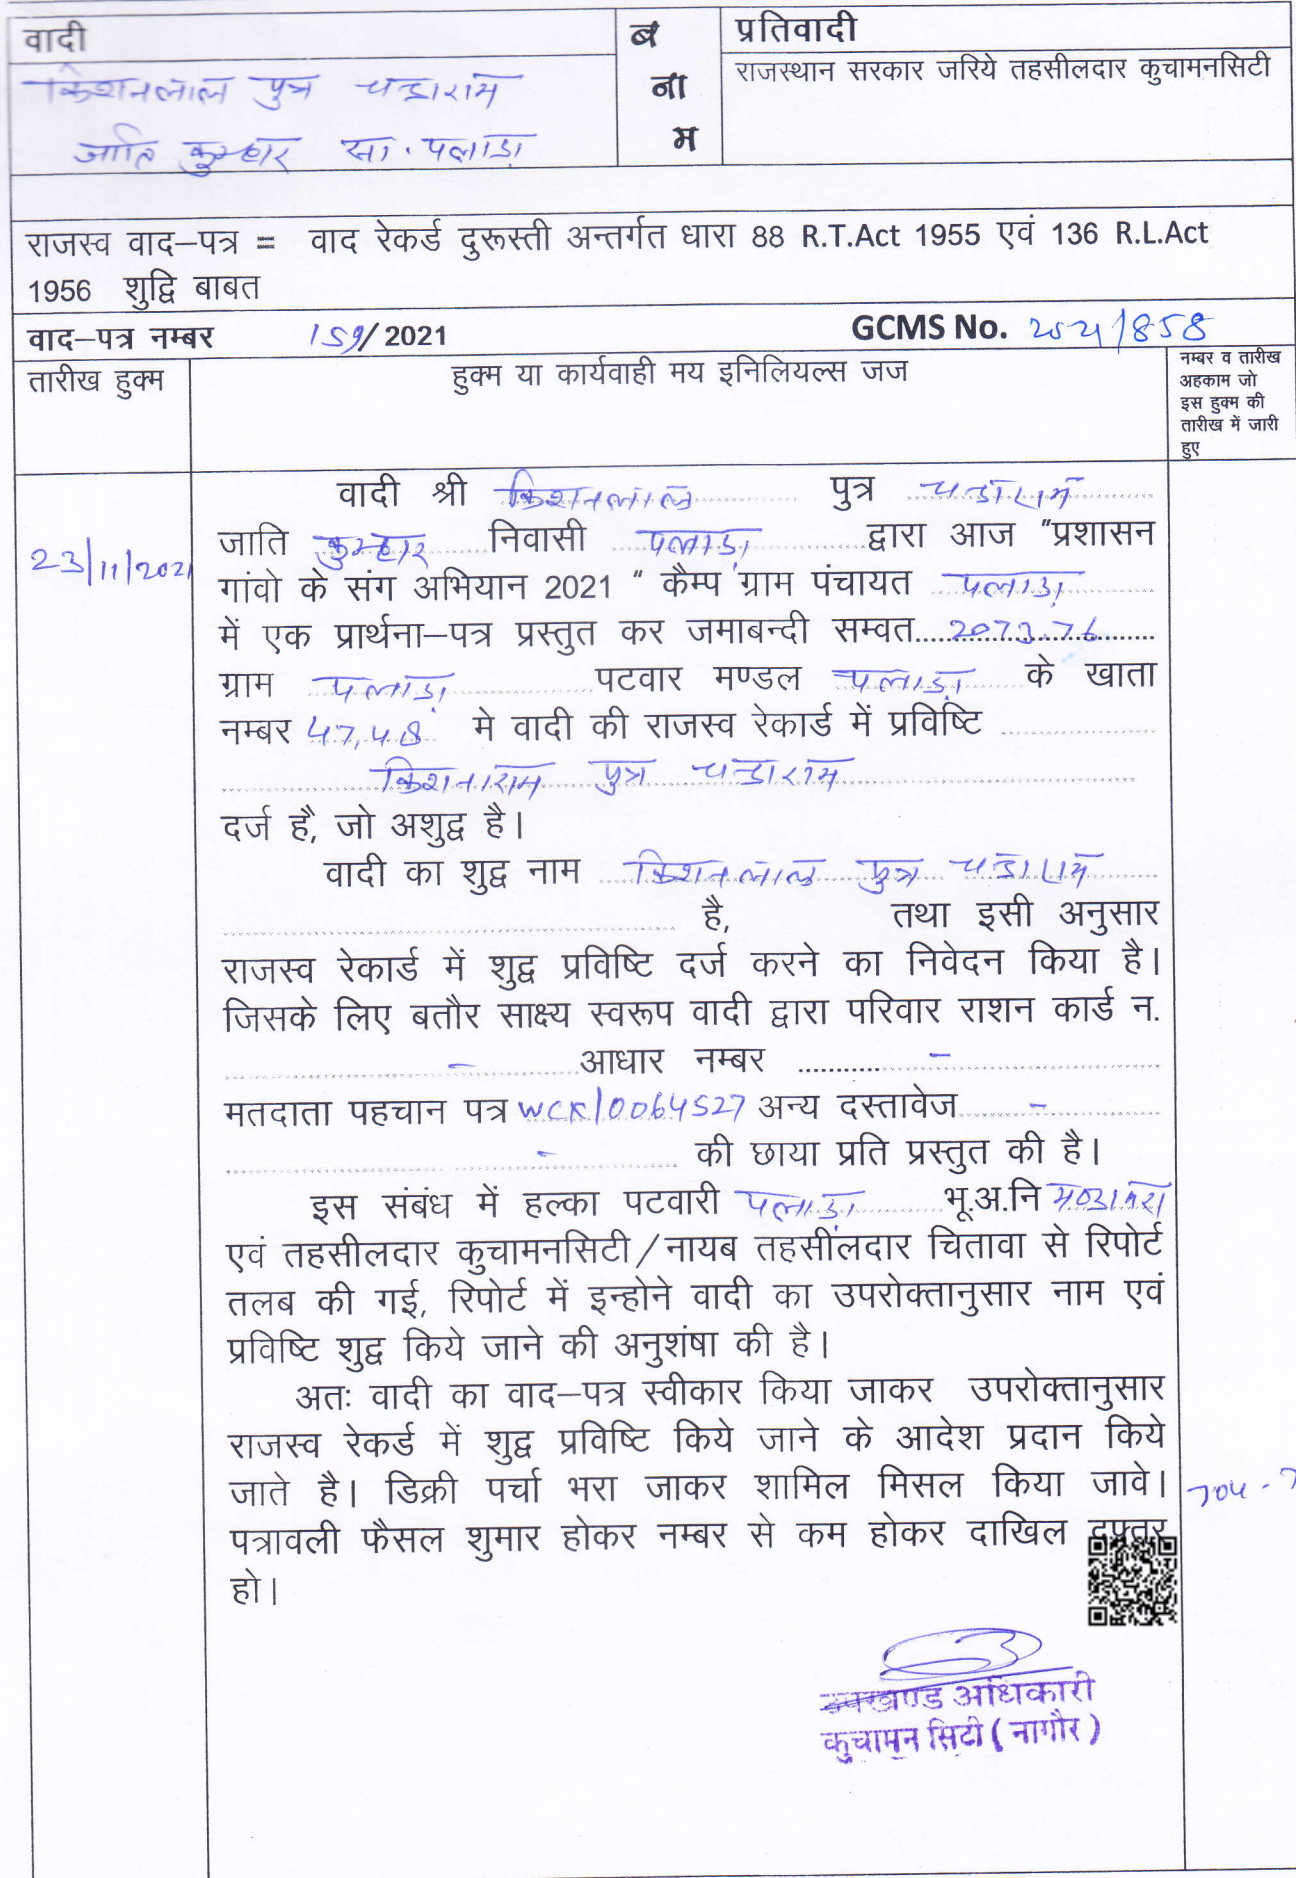 वादी
किशनलाल पुत्र चन्द्राराम
जाति कुम्हार सा. पलाड़ा
ब
ना
म
प्रतिवादी
राजस्थान सरकार जरिये तहसीलदार कुचामनसिटी
राजस्व वाद–पत्र = वाद रेकर्ड दुरूस्ती अन्तर्गत धारा 88 R.T.Act 1955 एवं 136 R.L.Act
1956 शुद्वि बाबत
वाद–पत्र नम्बर 159/ 2021 GCMS No. 2021/858
तारीख हुक्म
हुक्म या कार्यवाही मय इनिलियल्स जज
नम्बर व तारीख
अहकाम जो
इस हुक्म की
तारीख में जारी
हुए
23/11/2021
वादी श्री किशनलाल पुत्र चन्द्राराम
जाति कुम्हार निवासी पलाड़ा द्वारा आज "प्रशासन
गांवो के संग अभियान 2021 " कैम्प ग्राम पंचायत पलाड़ा
में एक प्रार्थना–पत्र प्रस्तुत कर जमाबन्दी सम्वत....2073-76....
ग्राम पलाड़ा पटवार मण्डल पलाड़ा के खाता
नम्बर 47,48 मे वादी की राजस्व रेकार्ड में प्रविष्टि
किशनाराम पुत्र चन्द्राराम
दर्ज है, जो अशुद्व है।
वादी का शुद्व नाम किशनलाल पुत्र चन्द्राराम
है, तथा इसी अनुसार
राजस्व रेकार्ड में शुद्व प्रविष्टि दर्ज करने का निवेदन किया है।
जिसके लिए बतौर साक्ष्य स्वरूप वादी द्वारा परिवार राशन कार्ड न.
- आधार नम्बर -
मतदाता पहचान पत्र WCK/0064527 अन्य दस्तावेज -
- की छाया प्रति प्रस्तुत की है।
इस संबंध में हल्का पटवारी पलाड़ा भू.अ.नि
एवं तहसीलदार कुचामनसिटी/नायब तहसीलदार चितावा से रिपोर्ट
तलब की गई, रिपोर्ट में इन्होने वादी का उपरोक्तानुसार नाम एवं
प्रविष्टि शुद्व किये जाने की अनुशंषा की है।
अतः वादी का वाद–पत्र स्वीकार किया जाकर उपरोक्तानुसार
राजस्व रेकर्ड में शुद्व प्रविष्टि किये जाने के आदेश प्रदान किये
जाते है। डिक्री पर्चा भरा जाकर शामिल मिसल किया जावे।
पत्रावली फैसल शुमार होकर नम्बर से कम होकर दाखिल दफ्तर
हो।
उपखण्ड अधिकारी
कुचामन सिटी ( नागौर )